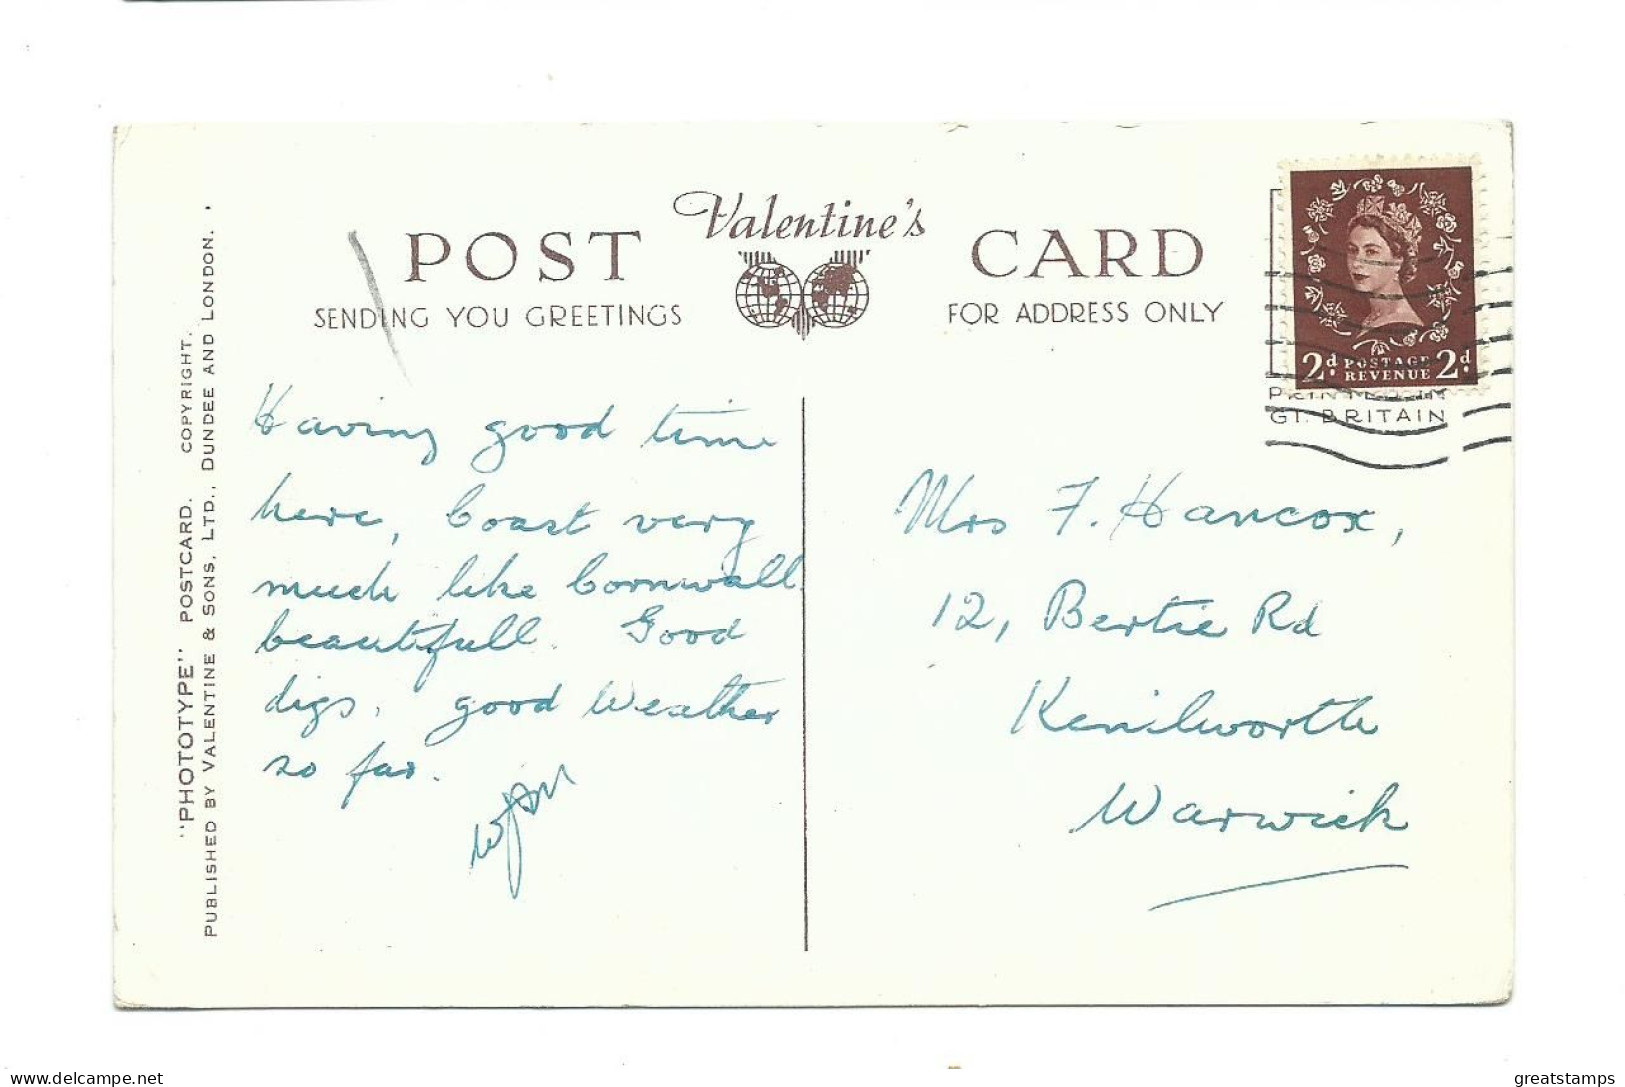 Valentine's
POST CARD
SENDING YOU GREETINGS
FOR ADDRESS ONLY
2d POSTAGE 2d
REVENUE
GT. BRITAIN
"PHOTOTYPE" POSTCARD. COPYRIGHT.
PUBLISHED BY VALENTINE & SONS, LTD., DUNDEE AND LONDON.
Having good time
here, Coast very
much like Cornwall
beautifull. Good
digs, good Weather
so far.
Mrs F. Hancox,
12, Bertie Rd
Kenilworth
Warwick
delcampe.net
greatstamps